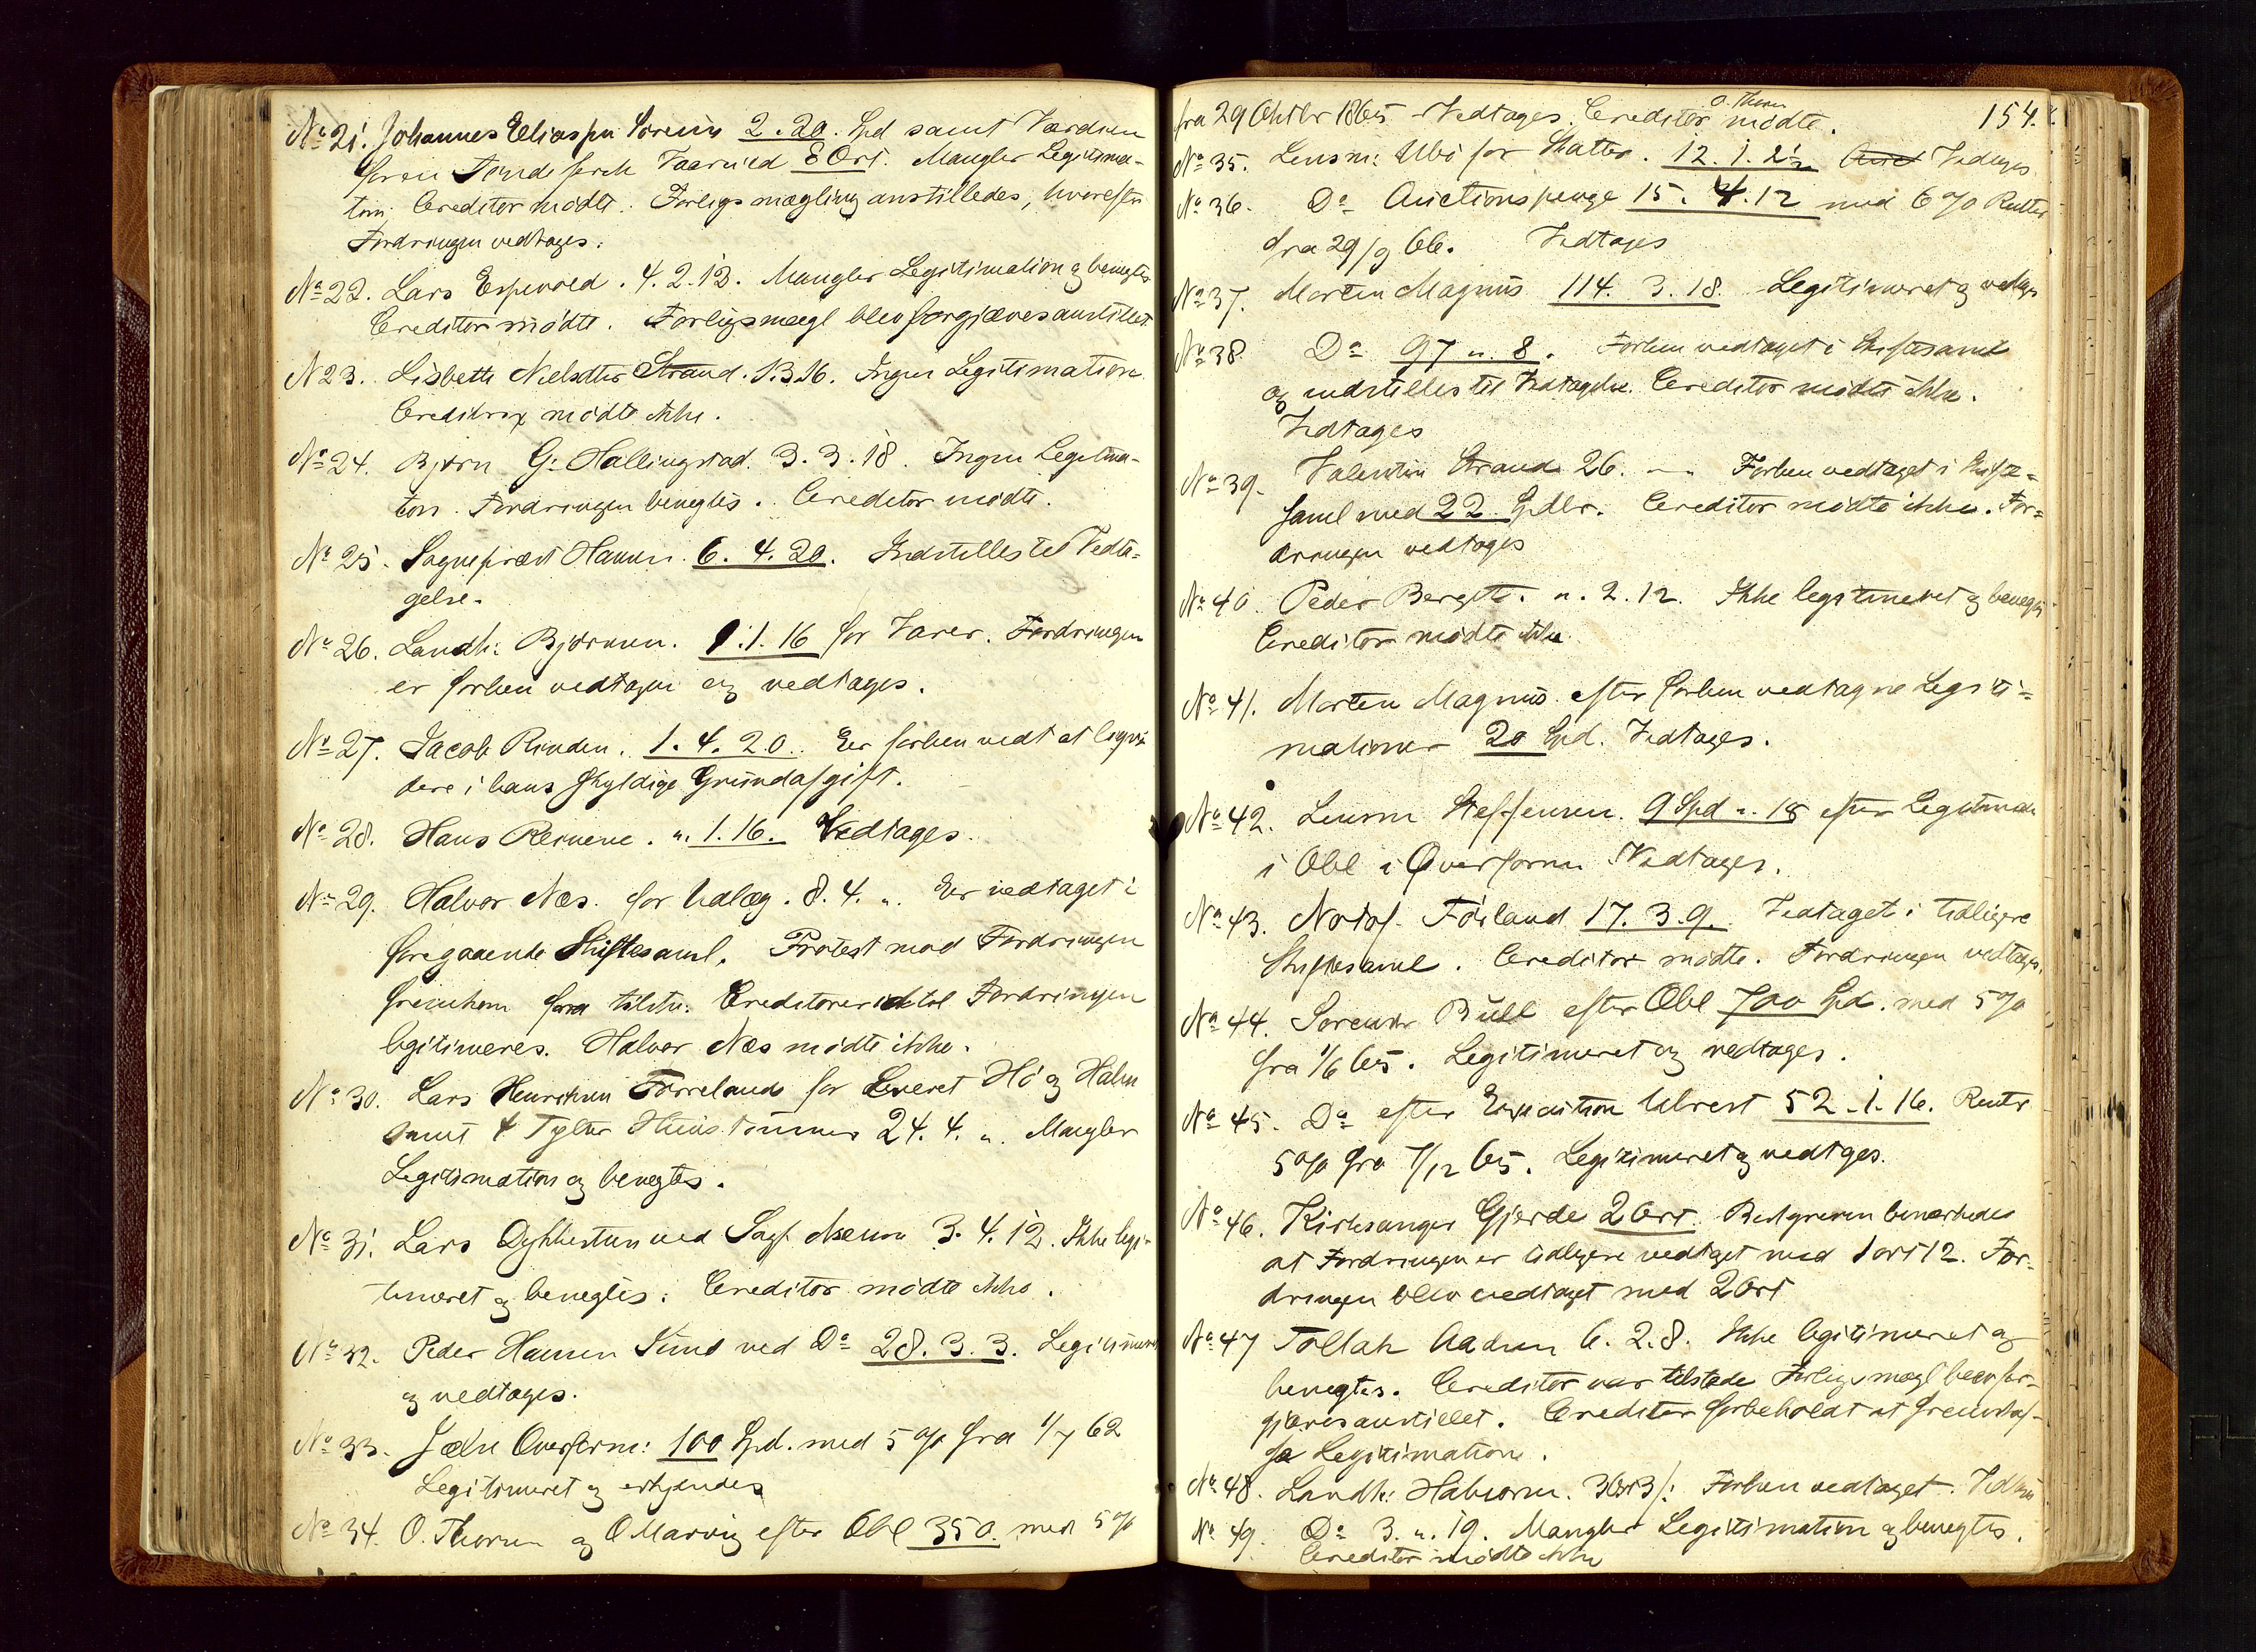 No 21. Johannes Eliassen Soreim 2.20. Spd samt Værdien
for en Tønde fersk Vaarsild 8 Ort. Mangler Legitima-
tion. Creditor mødte. Forligsmægling anstilledes, hvorefter
Fordringen vedtages.
No 22. Lars Espevold. 4.2.12. Mangler Legitimation og benegtes
Creditor mødte. Forligsmægl blev forgjæves anstillet.
No 23. Lisbeth Nielsdtr Strand. 1.3.16. Ingen Legitimation.
Creditrix mødte ikke.
No 24. Bjørn G: Hallingstad. 3.3.18. Ingen Legitima-
tion. Fordringen benegtes. Creditor mødte.
No 25. Sognepræst Hansen. 6.4.20. Indstilles til Vedta-
gelse.
No 26. Landh: Bjørnsen. 1.1.16 for Varer. Fordringen
er forhen vedtagen og vedtages.
No 27. Jacob Rinden. 1.4.20. Er forhen vedt at liqvi-
dere i hans skyldige Grundafgift.
No 28. Hans . „.1.16. Vedtages.
No 29. Halvor Næs. for Udlæg. 8.4.„. Er vedtaget i
foregaaende Skiftesaml. Protest mod Fordringen
fremkom fra tilst: Creditorer indtil Fordringen
legitimeres. Halvor Næs mødte ikke.
No 30. Lars Henriksen Førreland for Leveret Hø og Halm
samt 4 Tylter Huustømmer 24.4.„. Mangler
Legitimation og benegtes.
No 31. Lars Dykkestuen ved Sagf. 3.4.12. Ikke legi-
timeret og benegtes. Creditor mødte ikke.
No 32. Peder Hansen Sund ved Do 28.3.3. Legitimeret
og vedtages.
No 33. Jæderen Overform: 100 Spd. med 5% fra 1/7 62
Legitimeret og erkjendes
No 34. O. Thorsen og O Marvig efter Obl 350. med 5%
154.
fra 29 Oktbr 1865 Vedtages. Creditor O. Thorsen mødte.
No 35. Lensm: Ubø for Skatter. 12.1.2½ Vedtages
No 36. Do Auctionspenge 15.4.12 med 6% Renter
fra 29/9 66. Vedtages
No 37. Morten Magnus 114.3.18 Legitimeret og vedtages
No 38 Do 97 „. 8. Forhen vedtaget i Skiftesaml
og indstilles til Vedtagelse. Creditor mødte ikke.
Vedtages
No 39. Valentin Strand 26. „ „ Forhen vedtaget i Skifte-
saml med 22 Spdlr. Creditor mødte ikke. For-
dringen vedtages
No 40. Peder Bergst. „.2.12. Ikke legitimeret og benegtes
Creditor mødte ikke.
No 41. Morten Magnus efter forhen vedtagne Legiti-
mationer 20 Spd. Vedtages.
No 42. Lensm Steffensen. 9 Spd „. 18 efter Legitimation
i Obl i Overformn Vedtages.
No 43. Førland 17.3.9. Vedtaget i tidligere
Skiftesaml. Creditor mødte. Fordringen vedtages.
No 44. Sorenskr Bull efter Obl 700 Spd. med 5%
fra 1/6 65. Legitimeret og vedtages.
No 45. Do efter Execution 52.1.16. Renter
5% fra 7/12 65. Legitimeret og vedtages.
No 46. Kirkesanger Gjerde 2 Ort. Bestyreren bemærkede
at Fordringen er tidligere vedtaget med 1 ort 12. For-
dringen blev vedtaget med 2 Ort
No 47 Tollak Aadnsen 6.2.8. Ikke legitimeret og
benegtes. Creditor var tilstede Forligsmægl blev for-
gjæves anstillet. Creditor forbeholdt at fremskaf-
fe Legitimation.
No 48. Landh: Halvorsen. 3 Ort 3 /: Forhen vedtaget. Vedtages
No 49. Do 3.„.19. Mangler Legitimation og benegtes.
Creditor mødte ikke